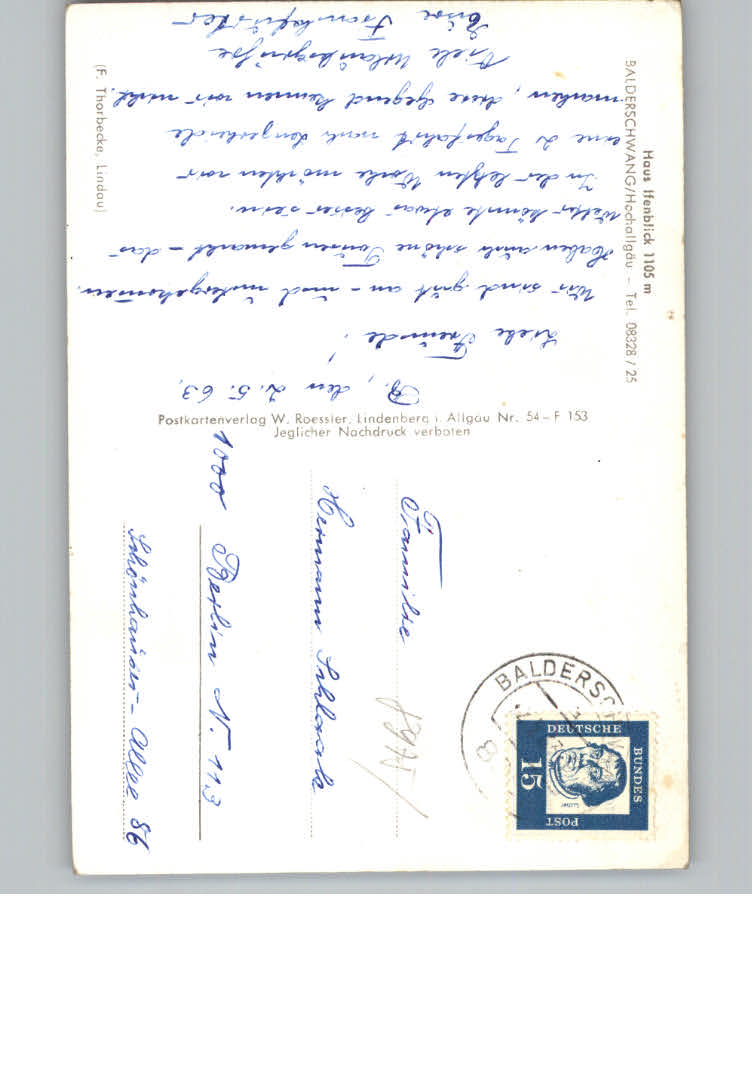 Haus Ifenblick 1105 m
BALDERSCHWANG/Hochallgäu – Tel. 08328 / 25
B., den 2. 5. 63.
Liebe Freunde!
Wir sind gut an - und untergekommen.
Haben auch schöne Touren gemacht - das
Wetter könnte etwas besser sein.
In der letzten Woche möchten wir
eine 2 Tagesfahrt nach
machen, diese Gegend kennen wir nicht.
Viele Urlaubsgrüße
Eure Frankfurter
(F. Thorbecke, Lindau)
Postkartenverlag W. Roessler, Lindenberg i. Allgäu Nr. 54 – F 153
Jeglicher Nachdruck verboten
BALDERSCH
DEUTSCHE
BUNDES
POST
15
Luther
Familie
Hermann
1000 Berlin N. 113
Schönhauser - Allee 86